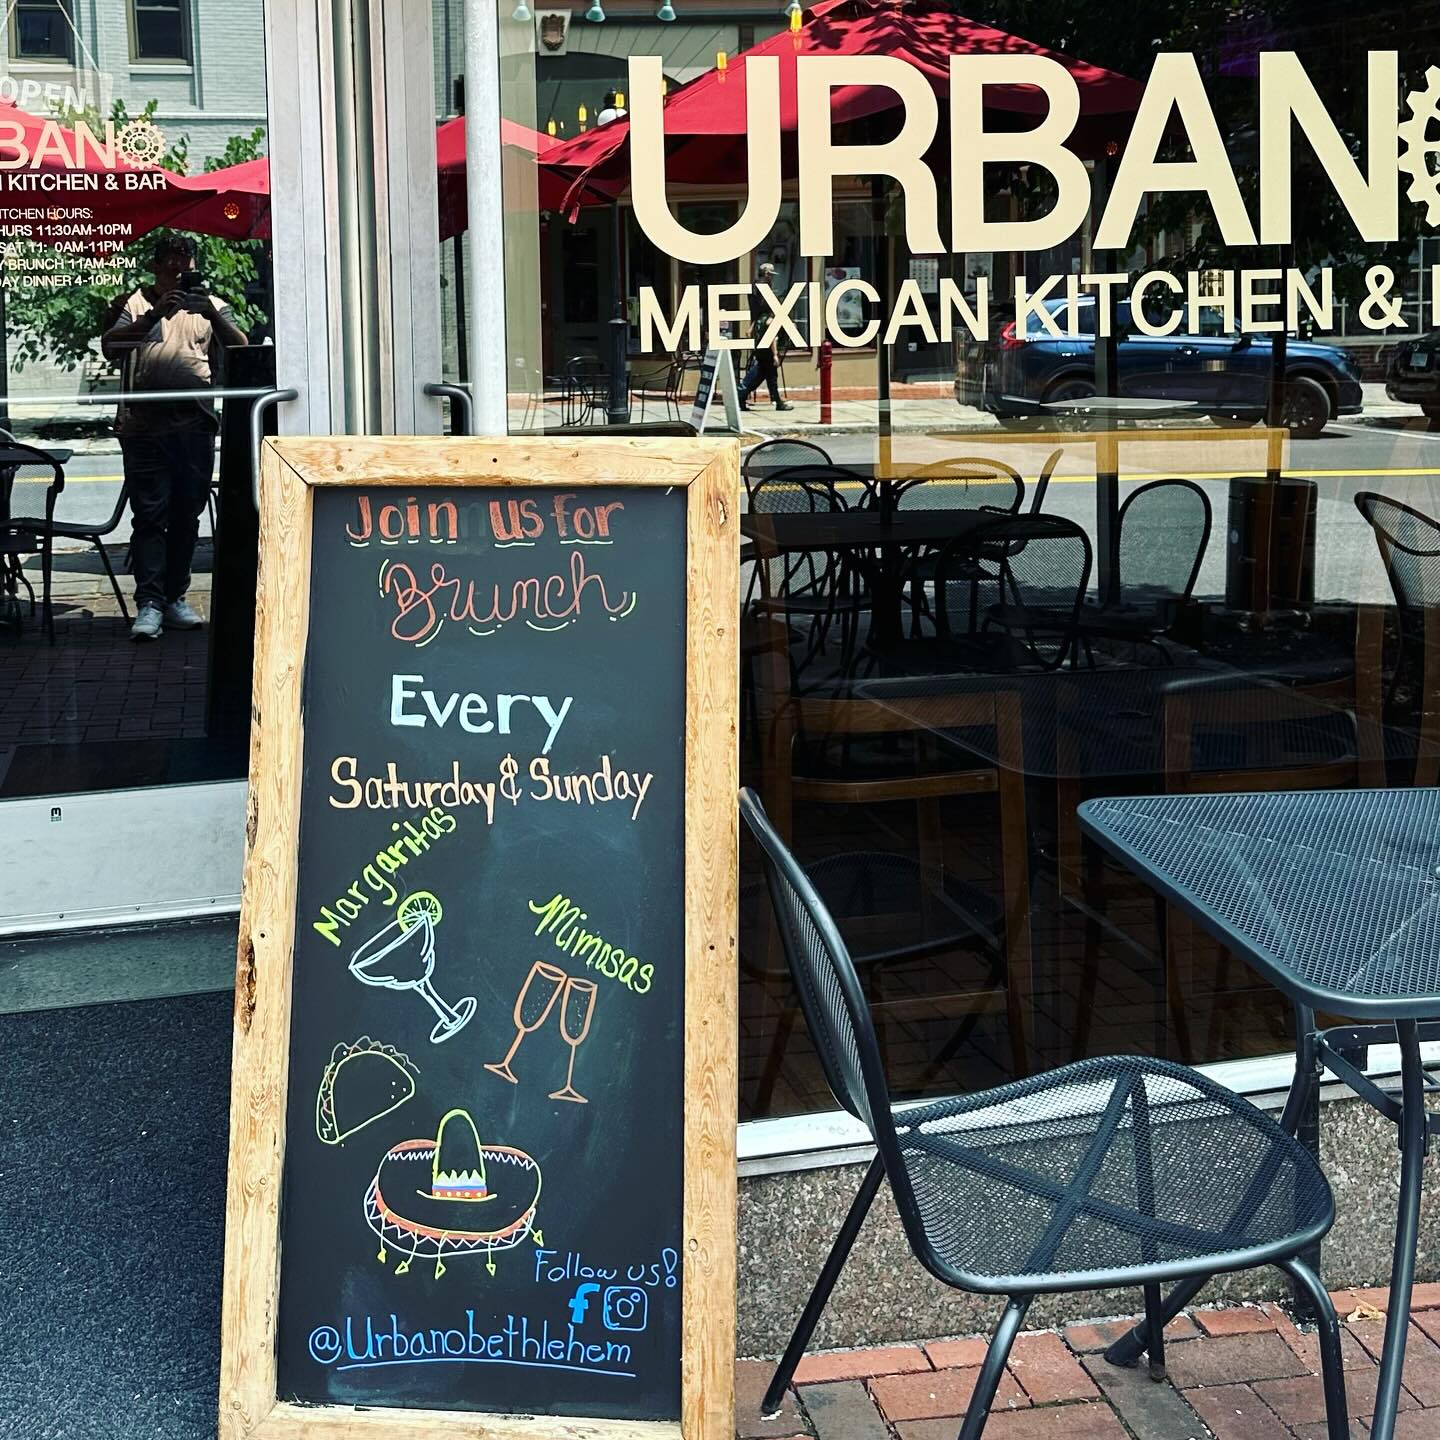 OPEN
BAN
KITCHEN & BAR
KITCHEN HOURS:
THURS 11:30AM-10PM
SAT. 11: 0AM-11PM
BRUNCH 11AM-4PM
DAY DINNER 4-10PM
URBANO
MEXICAN KITCHEN &
Join us for
Brunch
Every
Saturday & Sunday
Margaritas
Mimosas
Follow us!
f
@Urbanobethlehem